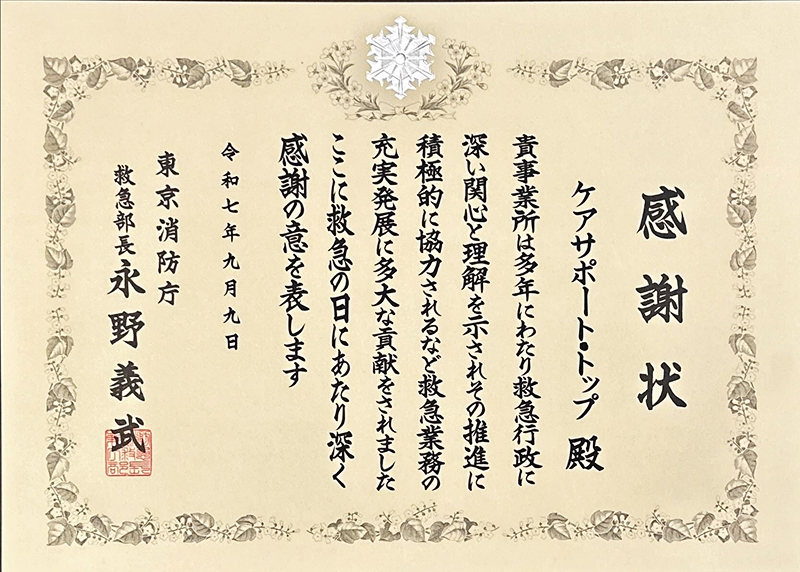 感謝状
ケアサポート・トップ 殿
貴事業所は多年にわたり救急行政に
深い関心と理解を示されその推進に
積極的に協力されるなど救急業務の
充実発展に多大な貢献をされました
ここに救急の日にあたり深く
感謝の意を表します
令和七年九月九日
東京消防庁
救急部長 永野義武